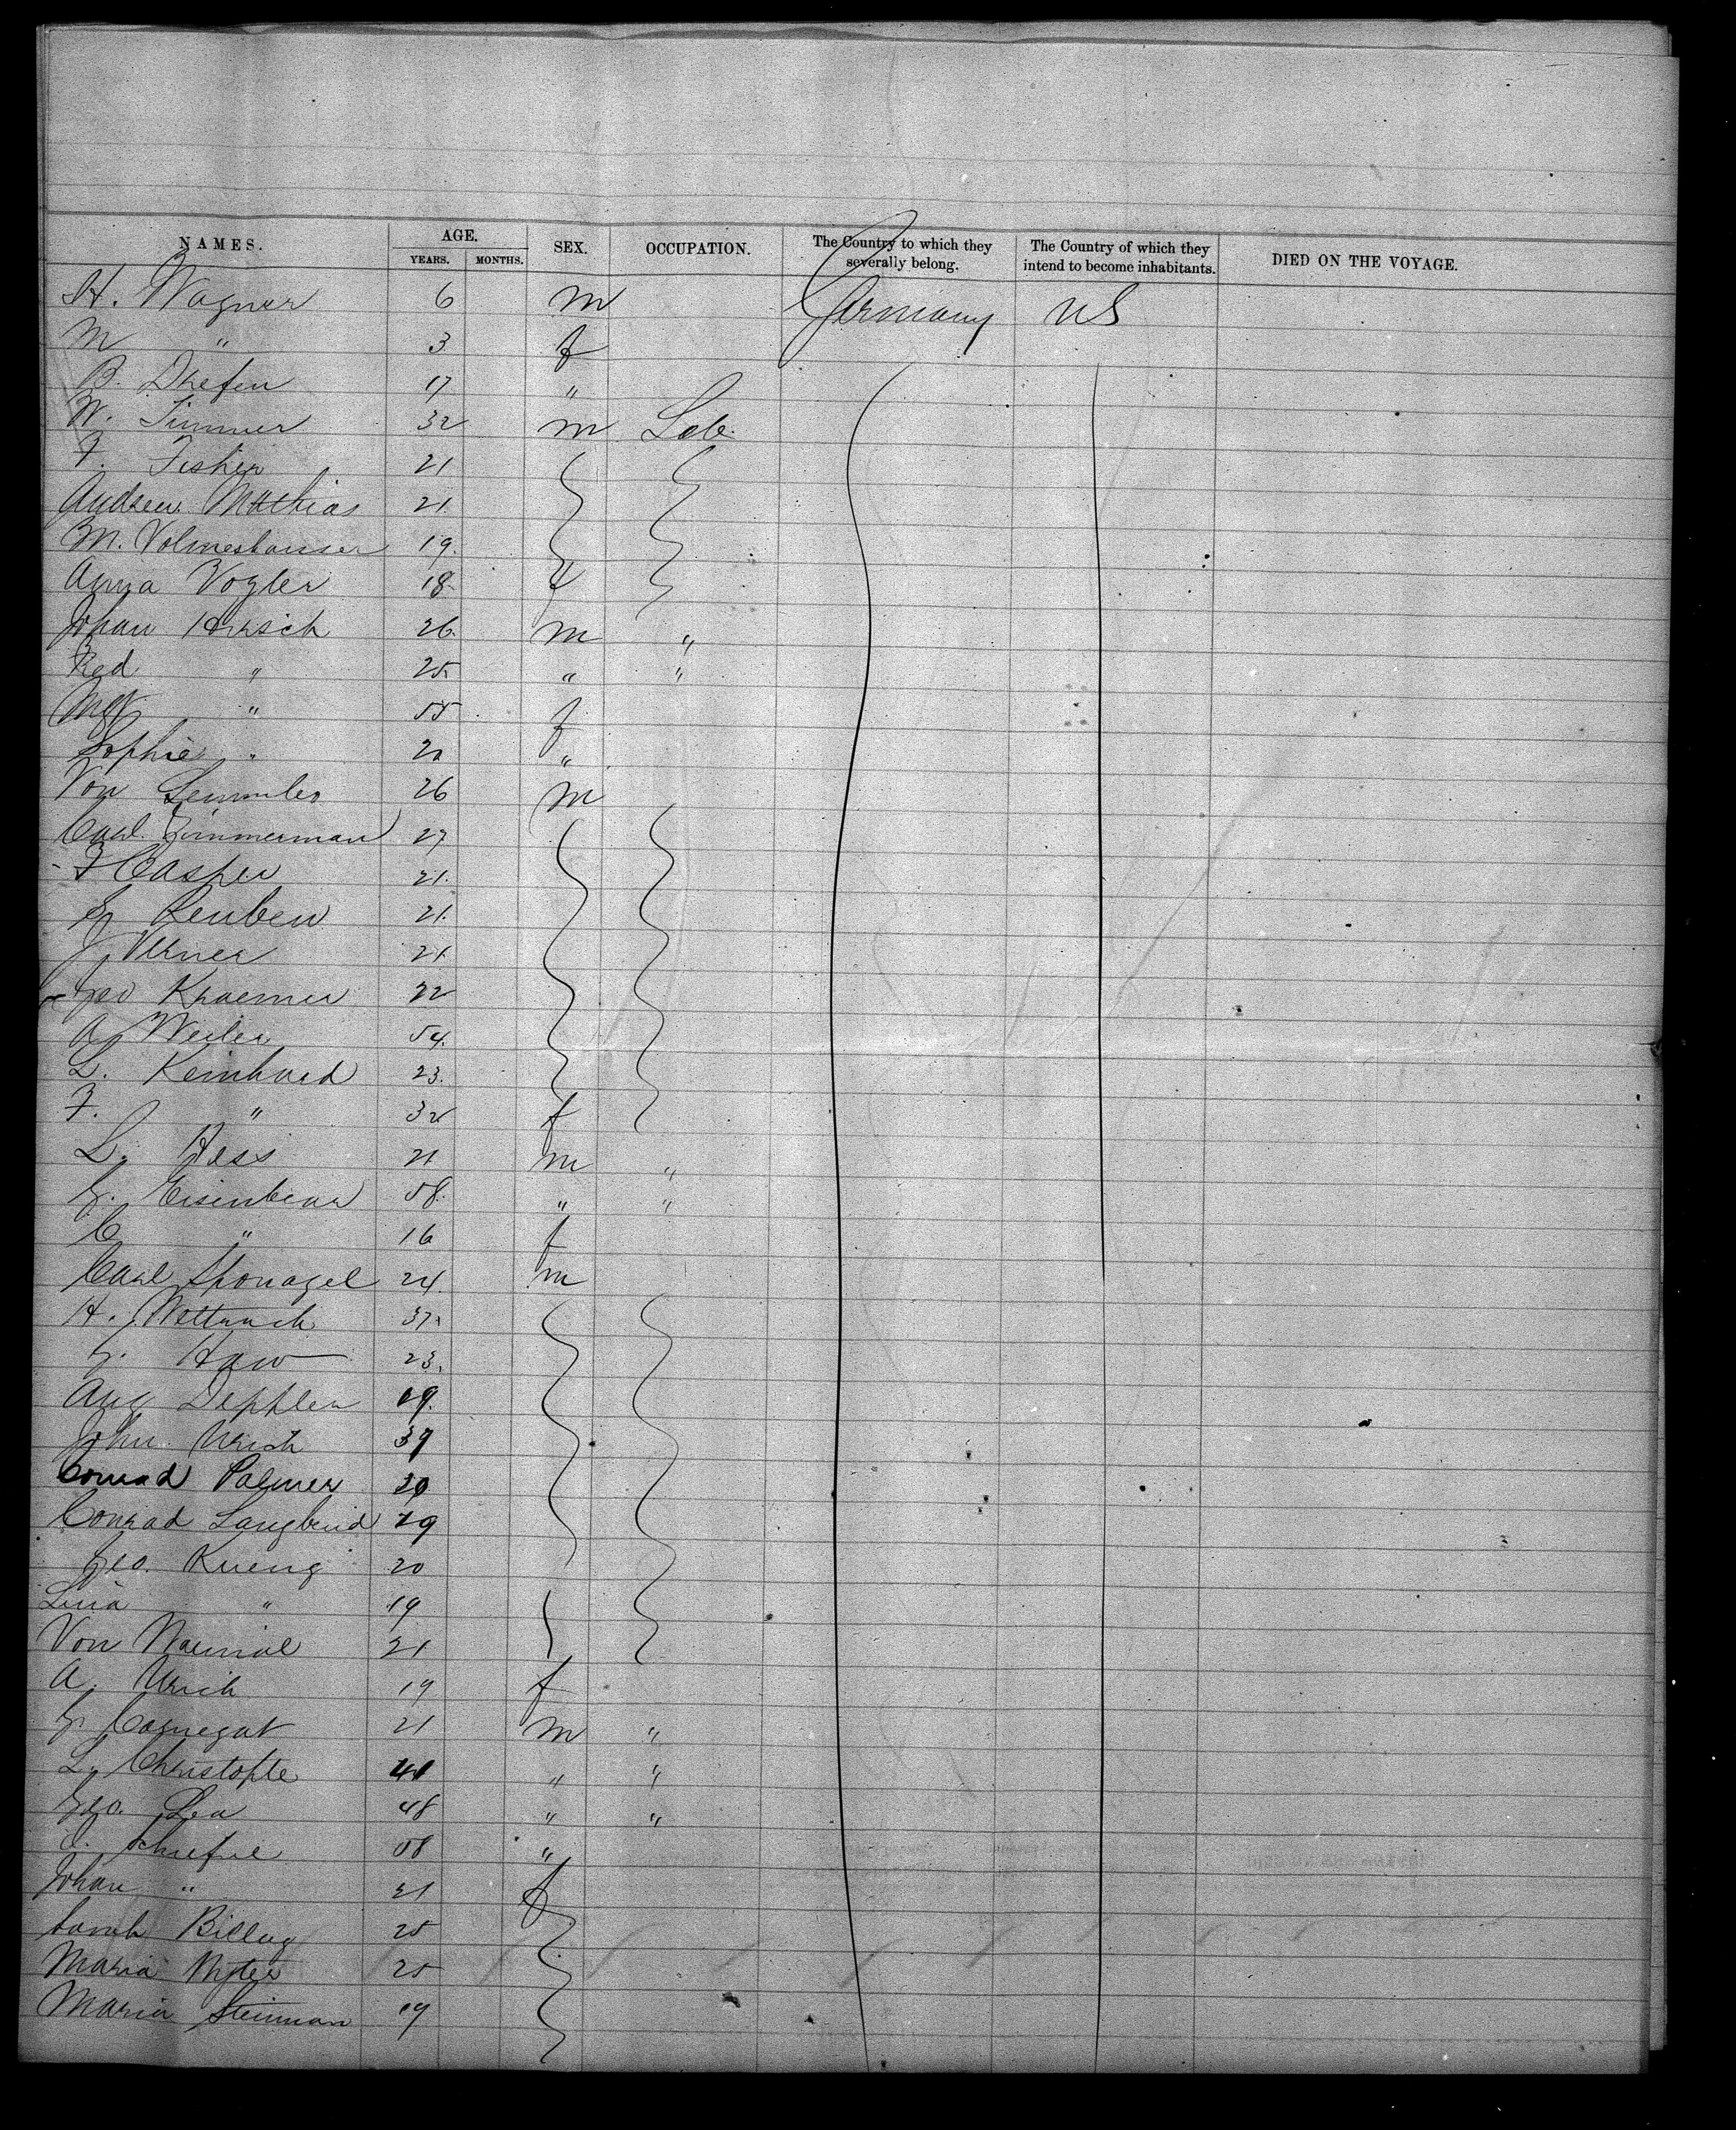 NAMES. AGE. YEARS. MONTHS. SEX. OCCUPATION. The Country to which they severally belong. The Country of which they intend to become inhabitants. DIED ON THE VOYAGE.
H. Wagner 6 m Germany US
M " 3 f
B. 17 "
W. Timmer 32 m Lab.
F. Fisher 21
Andreu Mathias 21.
M. Volmeshauser 19.
Anna Vogler 18. f
Johan Hirsch 26. m "
Fred " 25. " "
Mgt " 55 f
Sophie " 20 "
Von Semmler 26 m
Carl Zimmerman 27
F Casper 21.
G Reuben 21.
J Verner 21
Geo Kraemer 22
A Weiler 54.
L. Reinhard 23.
F. " 32 f
L. Hess 21 m "
G. Eisenbear 58. " "
C " 16 f
Carl Sponagel 24. m
H. 37.
G. Haw 23.
Aug Dephler 19.
John Urich 39
Conrad Palmer 30
Conrad Langbeid 29
Geo. Kueng 20
Lina " 19
Von 21
A. Urich 19 f
G. 21 m "
L. Christofle 41 " "
Geo. Lea 48 " "
58 "
Johan " 21 f
Sarah Billag 25
Maria 25
Maria Steinman 19